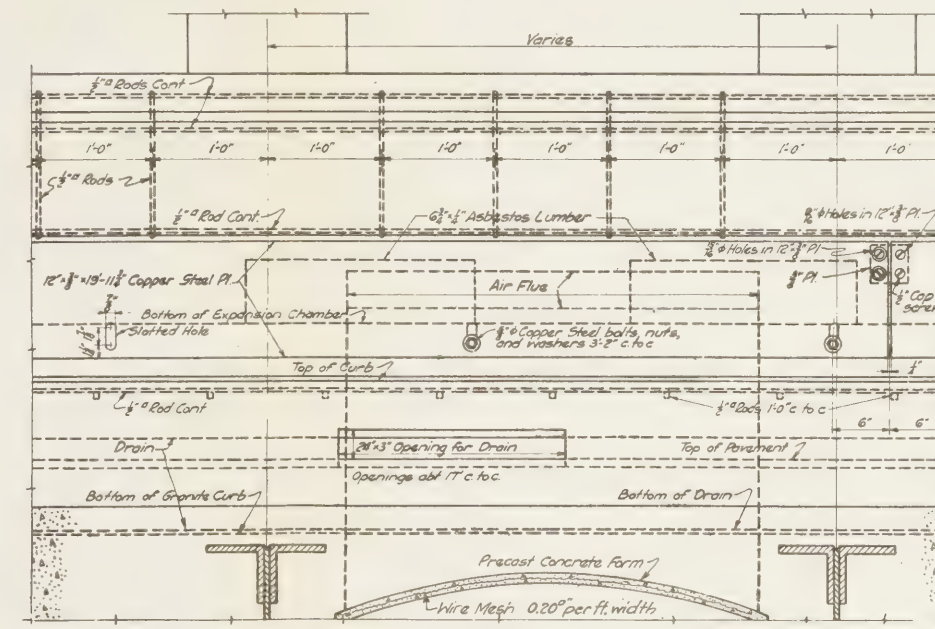 Varies
½"⌑ Rods Cont
1'-0" 1'-0" 1'-0" 1'-0" 1'-0" 1'-0" 1'-0" 1'-0"
½"⌑ Rods
½"⌑ Rod Cont.
6¾"×¼" Asbestos Lumber
Holes in 12"×⅜" Pl.
Holes in 12"×⅜" Pl
12"×⅜"×19'-11¾" Copper Steel Pl.
Pl.
Air Flue
Bottom of Expansion Chamber
Slotted Hole
Copper Steel bolts, nuts,
and washers 3'-2" c. to c
½" Cop
screw
Top of Curb
½"⌑ Rod Cont
½"⌑ Rods 1'-0" c to c
6" 6"
Drain
×3" Opening for Drain
Top of Pavement
Openings abt 17' c. to c.
Bottom of Granite Curb
Bottom of Drain
Precast Concrete Form
Wire Mesh 0.20⌑" per ft. width